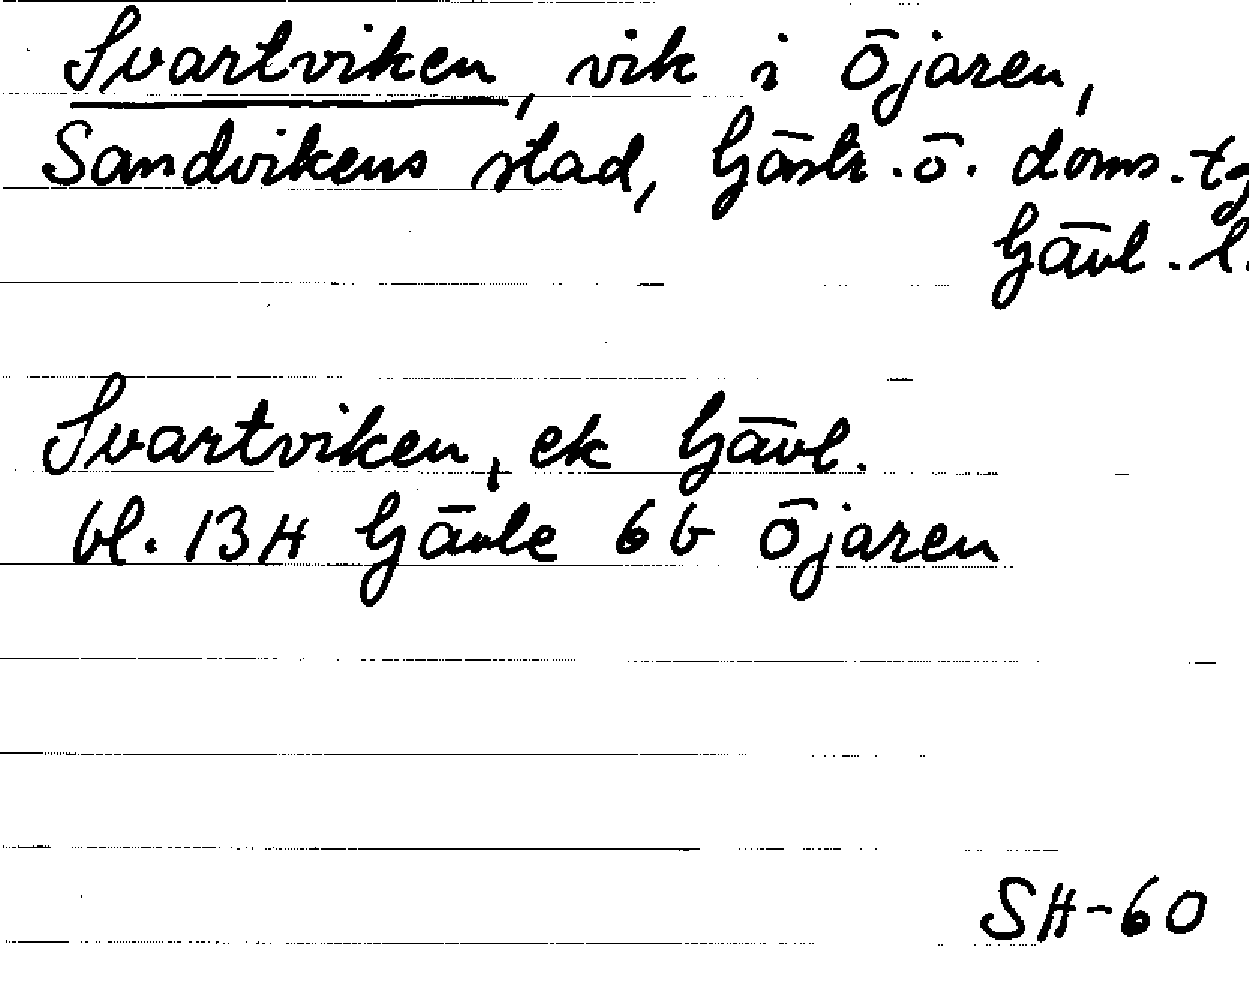 Svartviken, vik i Öjaren,
Sandvikens stad, Gästr.ö. doms.tg
Gävl.l.
Svartviken, ek Gävl.
bl. 13H Gävle 6b Öjaren
SH-60